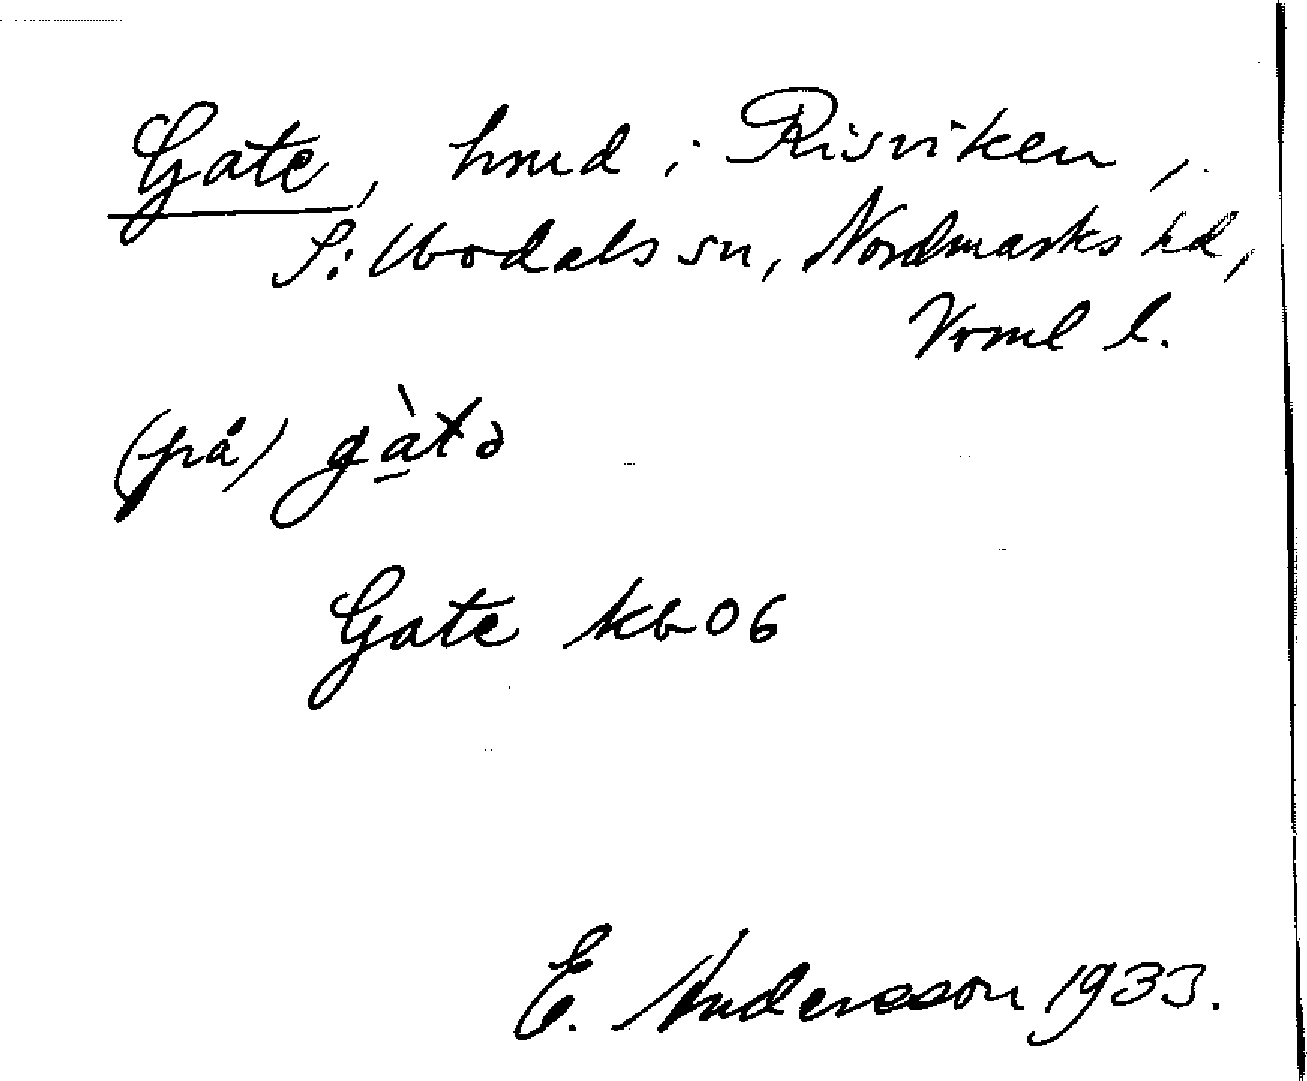 Gate, hmd i Risviken,
S: Ubodals sn, Nordmarks hd,
Vrml l.
(på) gàtə
Gate kb 06
E. Andersson 1933.